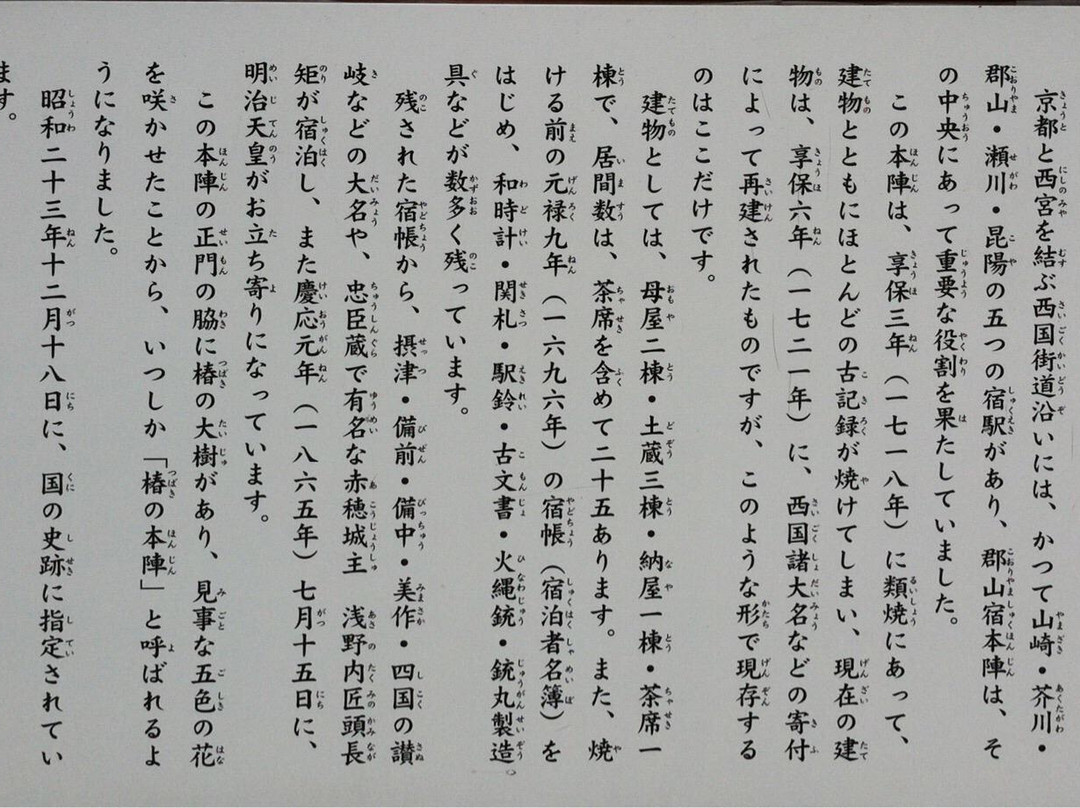 京都と西宮を結ぶ西国街道沿いには、かつて山崎・芥川・
郡山・瀬川・昆陽の五つの宿駅があり、郡山宿本陣は、そ
の中央にあって重要な役割を果たしていました。
この本陣は、享保三年（一七一八年）に類焼にあって、
建物とともにほとんどの古記録が焼けてしまい、現在の建
物は、享保六年（一七二一年）に、西国諸大名などの寄付
によって再建されたものですが、このような形で現存する
のはここだけです。
建物としては、母屋二棟・土蔵三棟・納屋一棟・茶席一
棟で、居間数は、茶席を含めて二十五あります。また、焼
ける前の元禄九年（一六九六年）の宿帳（宿泊者名簿）を
はじめ、和時計・関札・駅鈴・古文書・火縄銃・銃丸製造
具などが数多く残っています。
残された宿帳から、摂津・備前・備中・美作・四国の讃
岐などの大名や、忠臣蔵で有名な赤穂城主　浅野内匠頭長
矩が宿泊し、また慶応元年（一八六五年）七月十五日に、
明治天皇がお立ち寄りになっています。
この本陣の正門の脇に椿の大樹があり、見事な五色の花
を咲かせたことから、いつしか「椿の本陣」と呼ばれるよ
うになりました。
昭和二十三年十二月十八日に、国の史跡に指定されてい
ます。